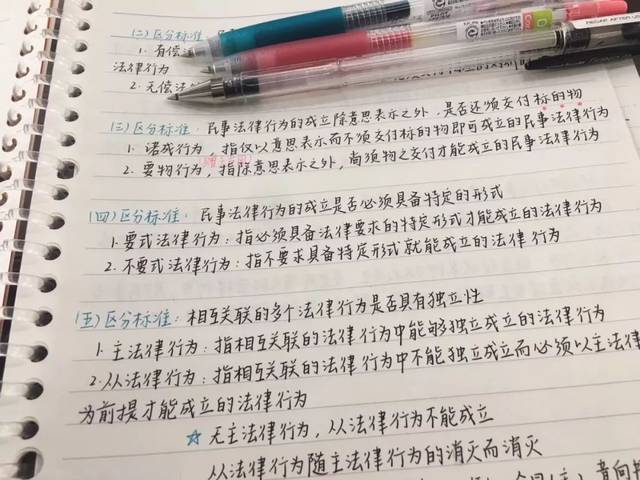 (二)区分标准:
1. 有偿法
法律行为
2. 无偿法
(三)区分标准:民事法律行为的成立除意思表示之外,是否还须交付标的物
1. 诺成行为,指仅以意思表示而不须交付标的物即可成立的民事法律行为
2. 要物行为,指除意思表示之外,尚须物之交付才能成立的民事法律行为
(四)区分标准:民事法律行为的成立是否必须具备特定的形式
1. 要式法律行为:指必须具备法律要求的特定形式才能成立的法律行为
2. 不要式法律行为:指不要求具备特定形式就能成立的法律行为
(五)区分标准:相互关联的多个法律行为是否具有独立性
1. 主法律行为:指相互关联的法律行为中能够独立成立的法律行为
2. 从法律行为:指相互关联的法律行为中不能独立成立而必须以主法律
为前提才能成立的法律行为
☆ 无主法律行为,从法律行为不能成立
从法律行为随主法律行为的消灭而消灭